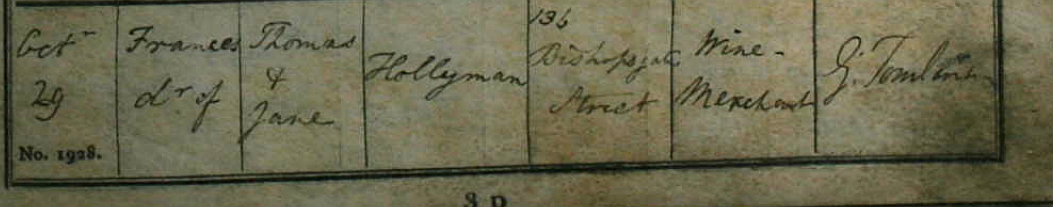 Octr
29
No. 1928.
Frances
dr of
Thomas
&
Jane
Hollyman
136
Bishopsgate
Street
Wine-
Merchant
G. Tomlinson
3 P